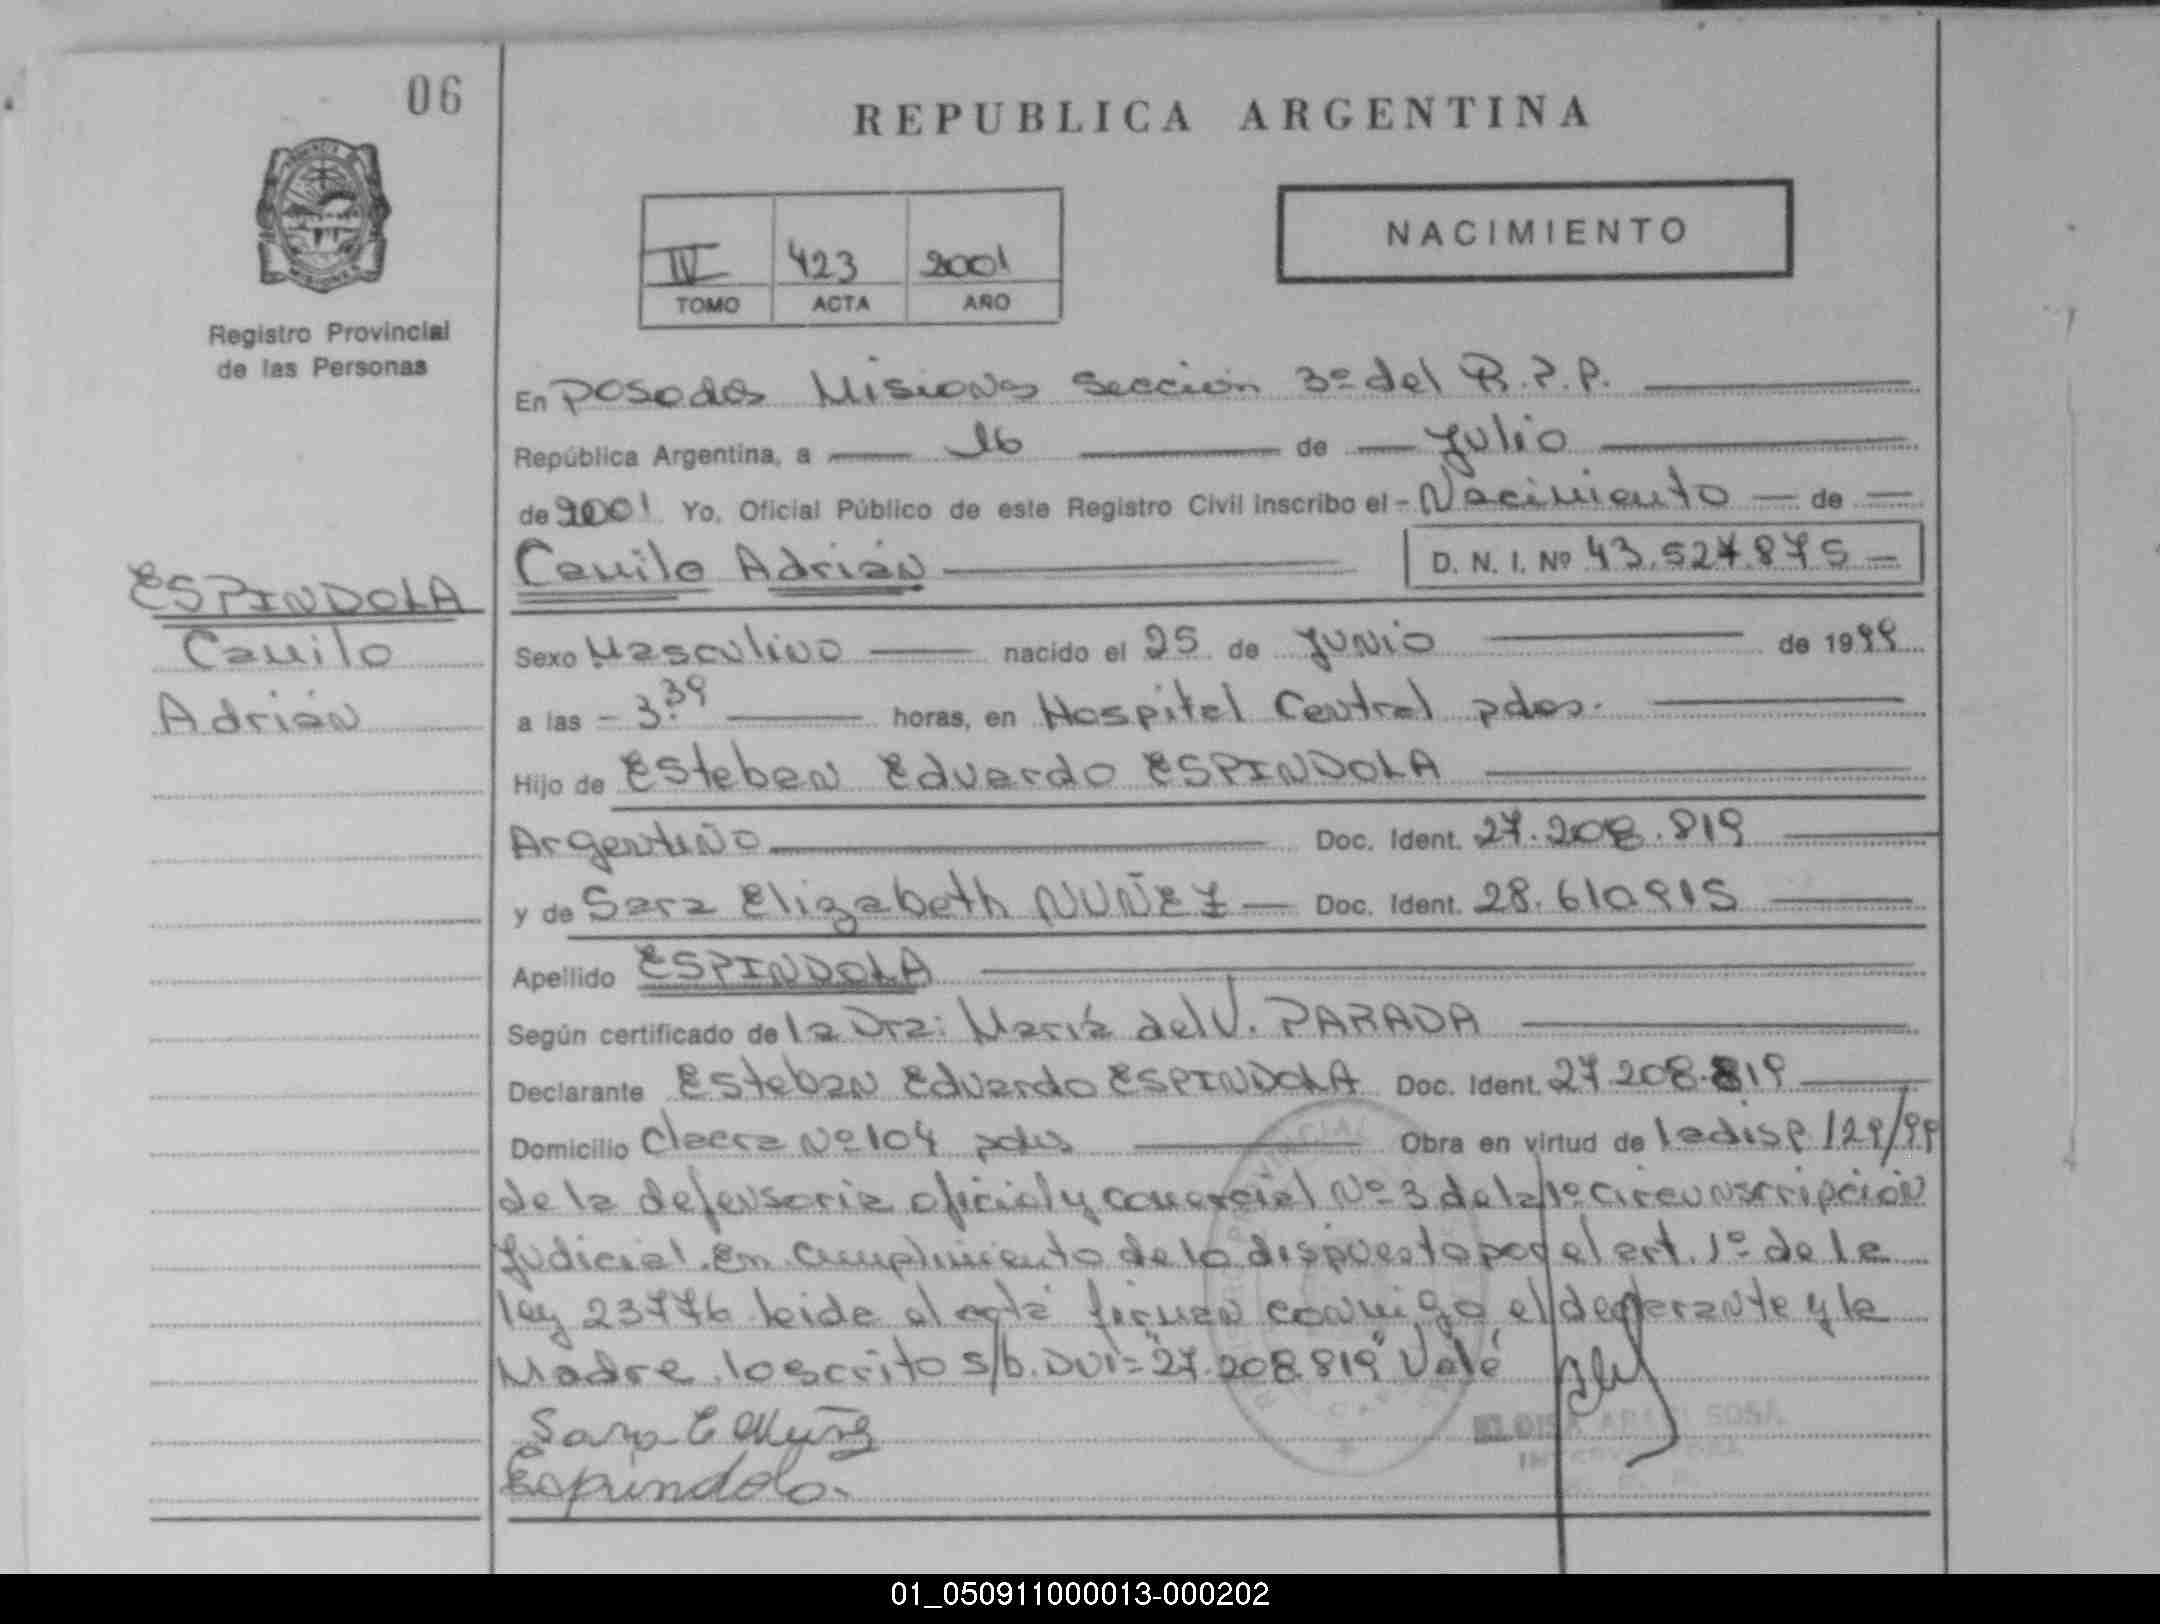 06
REPUBLICA ARGENTINA
NACIMIENTO
IV 423 2001
TOMO ACTA AÑO
Registro Provincial
de las Personas
En Posadas Misiones Sección 3º del R.P.P.
República Argentina, a 16 de Julio
de 2001 Yo, Oficial Público de este Registro Civil inscribo el - Nacimiento - de
Camilo Adrián D. N. I. Nº 43.527.875 -
ESPINDOLA
Camilo
Adrián
Sexo Masculino nacido el 25 de Junio de 1999
a las - 3.39 horas, en Hospital Central pdas.
Hijo de Esteban Eduardo ESPINDOLA
Argentino Doc. Ident. 27.208.819
y de Sara Elizabeth NUÑEZ - Doc. Ident. 28.610.915
Apellido ESPINDOLA
Según certificado de la Dra: María del V. PARADA
Declarante Esteban Eduardo ESPINDOLA Doc. Ident. 27.208.819
Domicilio Chacra Nº 104 pdas Obra en virtud de la disp 129/99
de la defensoria oficial y comercial Nº 3 de la 1º circunscripción
Judicial. En cumplimiento de lo dispuesto por el art. 1º de la
ley 23776 leida el acta firman conmigo el declarante y la
Madre. lo escrito s/b. DNI= "27.208.819" Vale
Sara E Nuñez
Espindola.
ELOISA SOSA
01_050911000013-000202